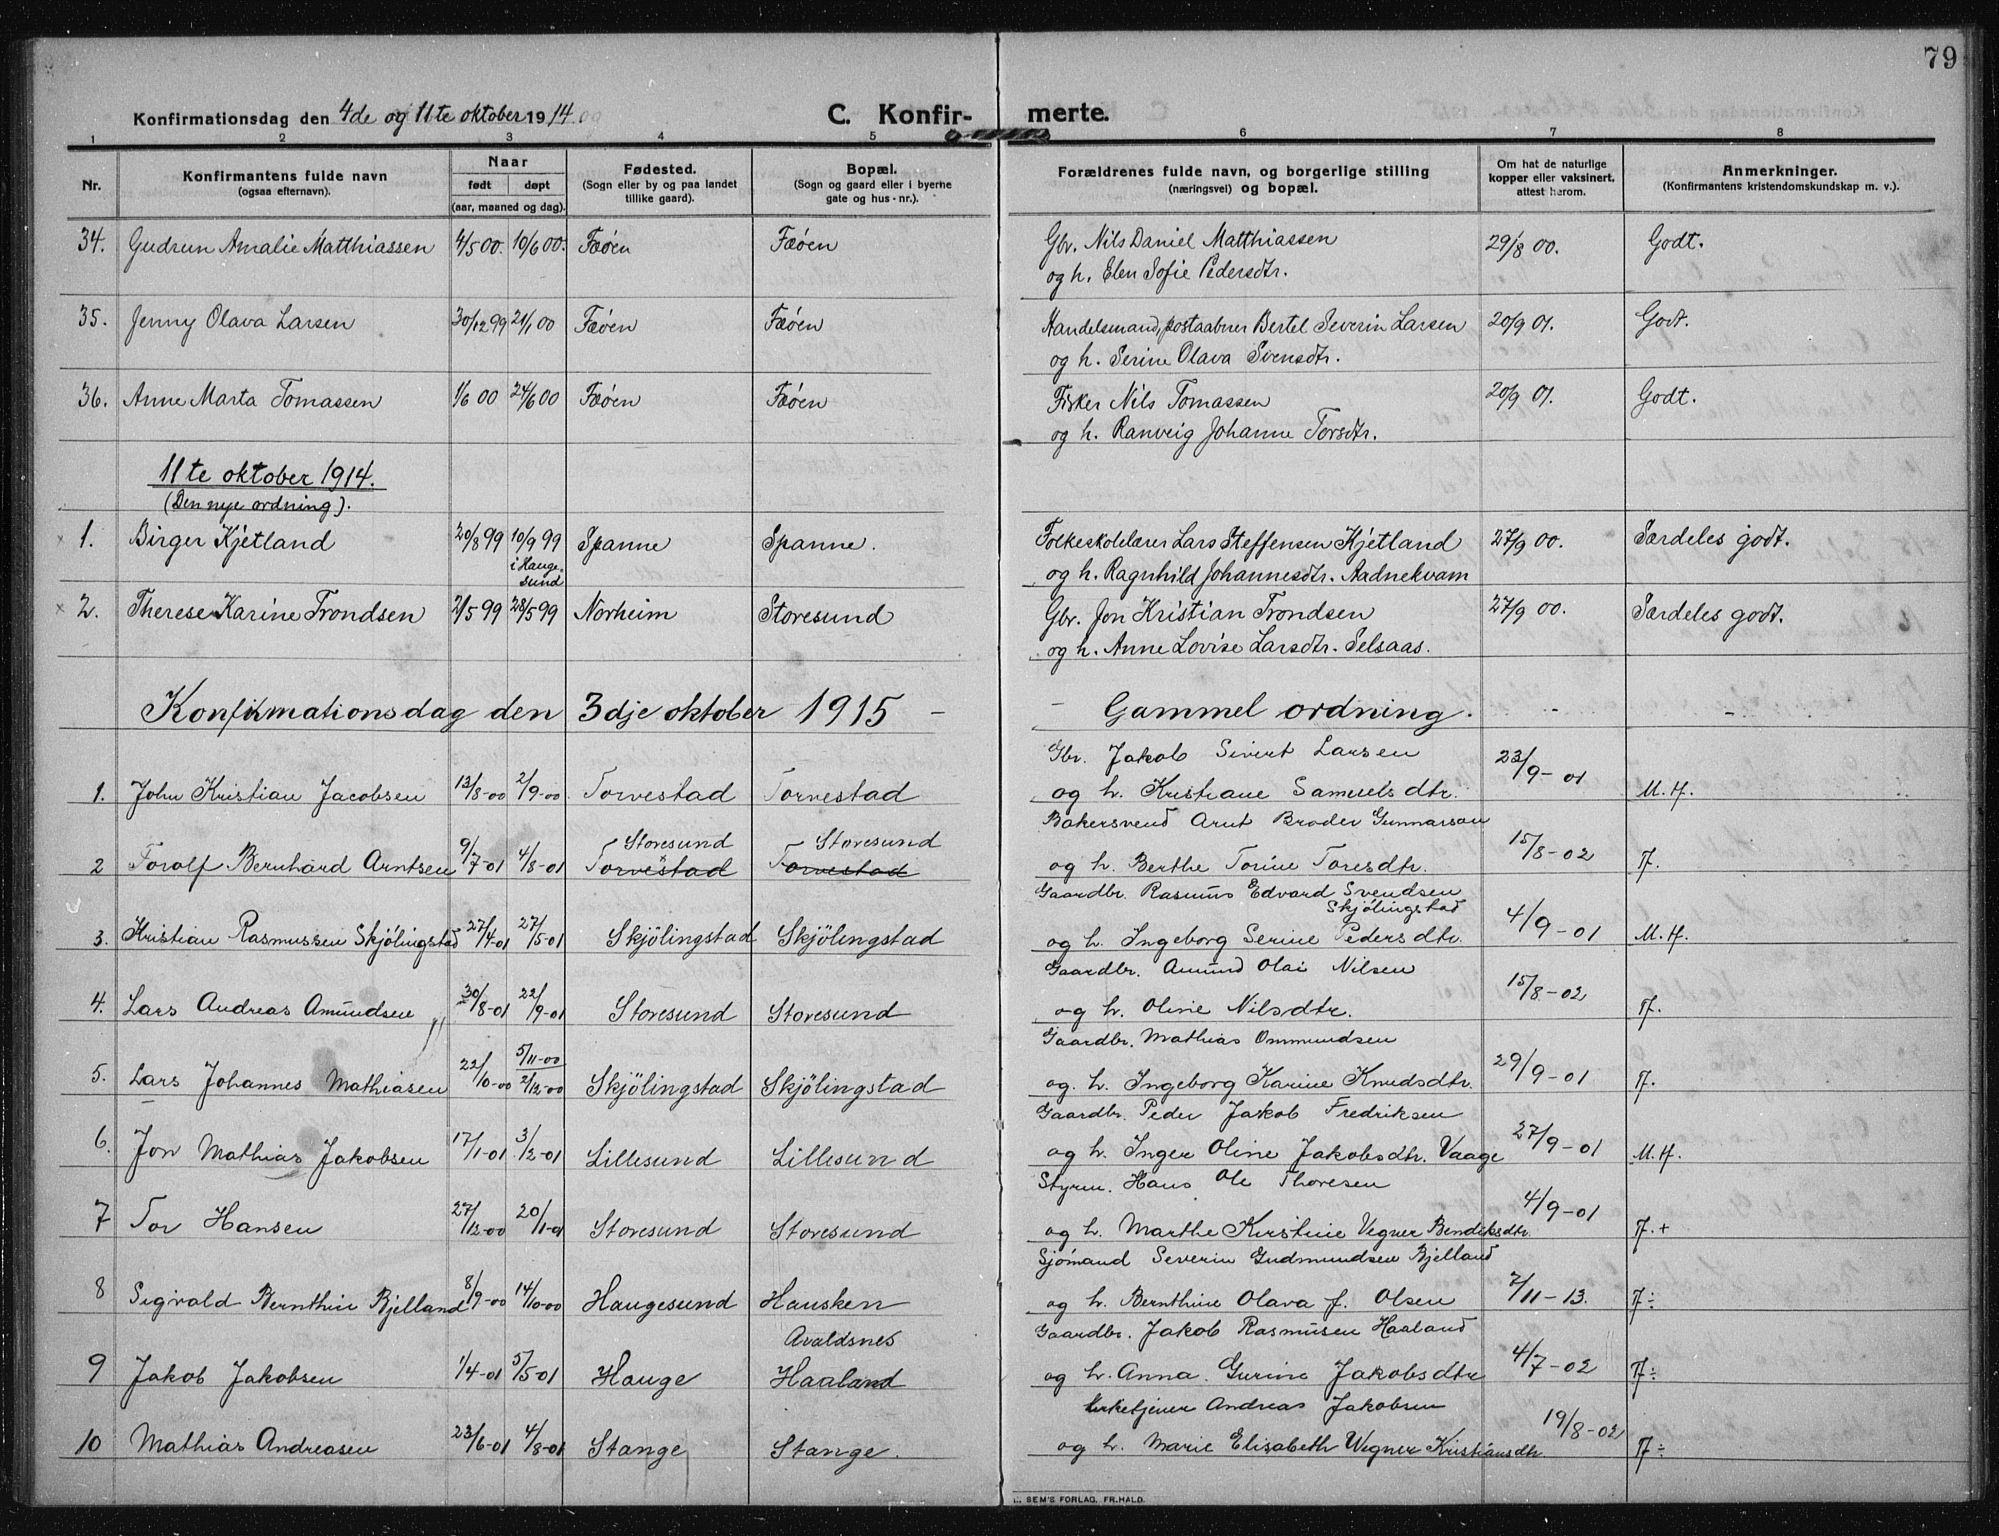 79
Konfirmationsdag den 4de og 11te oktober 1914.
C. Konfirmerte.
1 2 3 4 5 6 7 8
Nr. Konfirmantens fulde navn (ogsaa efternavn). Naar født døpt (aar, maaned og dag). Fødested. (Sogn eller by og paa landet tillike gaard). Bopæl. (Sogn og gaard eller i byerne gate og hus-nr.). Forældrenes fulde navn, og borgerlige stilling (næringsvei) og bopæl. Om hat de naturlige kopper eller vaksinert, attest herom. Anmerkninger. (Konfirmantens kristendomskundskap m. v.).
34. Gudrun Amalie Matthiassen 4/5 00. 10/6 00. Fæøen Fæøen Gbr. Nils Daniel Matthiassen 29/8 00. Godt.
og h. Elen Sofie Pedersdtr.
35. Jenny Olava Larsen 30/12 99 21/1 00 Fæøen Fæøen Handelsmand, postaabner Bertel Severin Larsen 20/9 01. Godt.
og h. Serine Olava Svensdtr.
36. Anne Marta Tomassen 1/6 00 24/6 00 Fæøen Fæøen Fisker Nils Tomassen 20/9 01. Godt.
og h. Ranveig Johanne Torsdtr.
11te oktober 1914.
(Den nye ordning).
x 1. Birger Kjetland 20/8 99 10/9 99 i Haugesund Spanne Spanne. Folkeskolelærer Lars Steffensen Kjetland 27/9 00. Særdeles godt.
og h. Ragnhild Johannesdtr. Aadnekvam
x 2. Therese Karine Trondsen 2/5 99 28/5 99 Norheim Storesund Gbr. Jon Kristian Trondsen 27/9 00. Særdeles godt.
og h. Anne Lovise Larsdtr. Selsaas.
Konfirmationsdag den 3dje oktober 1915 - - Gammel ordning.
Gbr. Jakob Sivert Larsen
1. John Kristian Jacobsen 13/8-00 2/9-00 Torvestad Torvestad og h. Kristiane Samuelsdtr. 23/9-01 M.H.
Bakersvend Arnt Broder Gunnarson
Storesund Storesund
2 Toralf Bernhard Arntsen 9/7-01 4/8-01 Torvestad Torvestad og h. Berthe Torine Toresdtr. 15/8-02 T.
Gaardbr. Rasmus Edvard Svendsen
Skjölingstad
3. Kristian Rasmussen Skjölingstad 27/4-01 27/5-01 Skjölingstad Skjölingstad og h. Ingeborg Serine Pedersdtr. 4/9-01 M.H.
Gaardbr. Amund Olai Nilsen
4. Lars Andreas Amundsen 30/8-01 22/9-01 Storesund Storesund og h. Oline Nilsdtr. 15/8-02 T.
Gaardbr. Mathias Ommundsen
5. Lars Johannes Mathiasen 22/10-00 5/11-00 2/12-00 Skjölingstad Skjölingstad og. h. Ingeborg Karine Knudsdtr. 29/9-01 T.
Gaardbr. Peder Jakob Fredriksen
6. Jon Mathias Jakobsen 17/1-01 3/2-01 Lillesund Lillesund og h. Inger Oline Jakobsdtr. Vaage 27/9-01 M.H.
Styrm. Hans Ole Thoresen
7 Tor Hansen 27/12-00 20/1-01 Storesund Storesund og h. Marthe Kirstine Vegner Bendiksdtr. 4/9-01 T.+
Sjömand Severin Gudmundsen Bjelland
8 Sigvald Bernthin Bjelland 8/9-00 14/10-00 Haugesund Hausken og h. Bernthine Olava f. Olsen 7/11-13. T÷
Avaldsnes Gaardbr. Jakob Rasmusen Haaland
9 Jakob Jakobsen 1/4-01 5/5-01 Hauge Haaland og h. Anna Gurine Jakobsdtr 4/7-02 T÷
Kirketjener Andreas Jakobsen
10 Mathias Andreasen 23/6-01 4/8-01 Stange Stange. og h. Marie Elisabeth Wegner Kristiansdtr. 19/8-02 T÷
SEM'S FORLAG, FR.HALD.